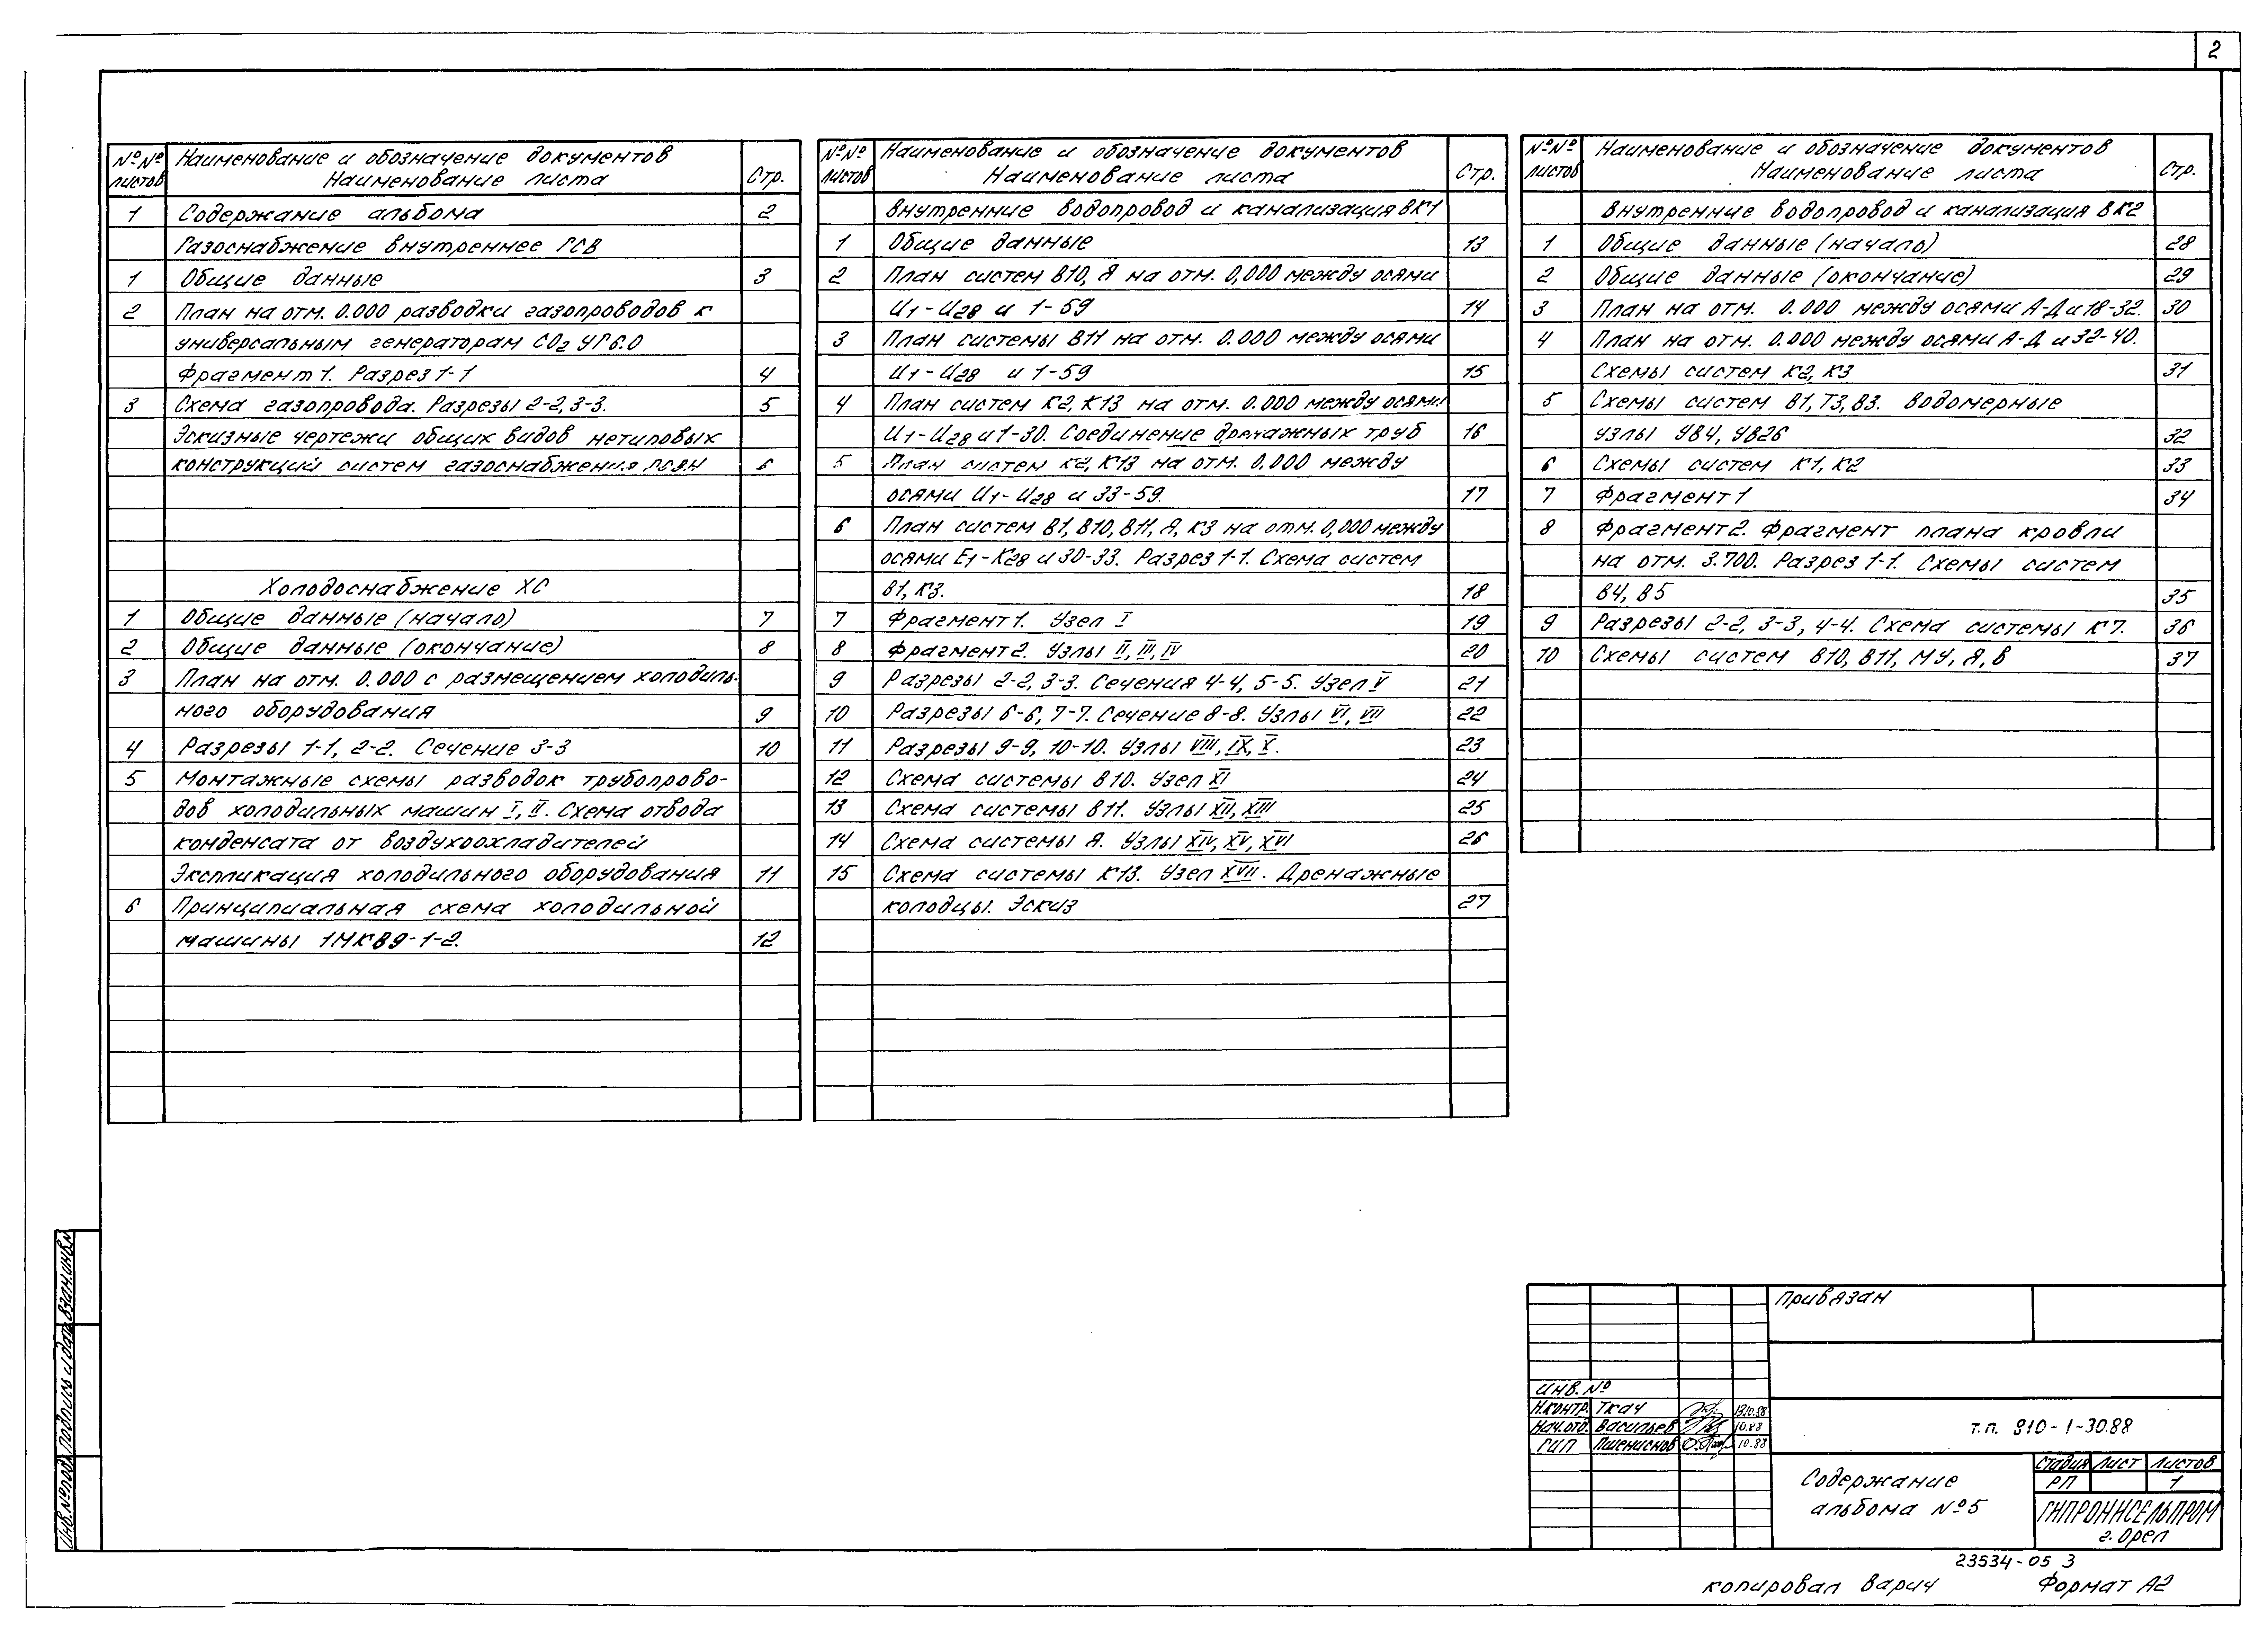 2
№№ листов Наименование и обозначение документов Наименование листа Стр.
1 Содержание альбома 2
Газоснабжение внутреннее ГСВ
1 Общие данные 3
2 План на отм. 0.000 разводки газопроводов к
универсальным генераторам СО2 УГ6.0
Фрагмент 1. Разрез 1-1 4
3 Схема газопровода. Разрезы 2-2, 3-3. 5
Эскизные чертежи общих видов нетиповых
конструкций систем газоснабжения ГСВН 6
Холодоснабжение ХС
1 Общие данные (начало) 7
2 Общие данные (окончание) 8
3 План на отм. 0.000 с размещением холодиль-
ного оборудования 9
4 Разрезы 1-1, 2-2. Сечение 3-3 10
5 Монтажные схемы разводок трубопрово-
дов холодильных машин I, II. Схема отвода
конденсата от воздухоохладителей
Экспликация холодильного оборудования 11
6 Принципиальная схема холодильной
машины 1МКВ9-1-2. 12
№№ листов Наименование и обозначение документов Наименование листа Стр.
Внутренние водопровод и канализация ВК1
1 Общие данные 13
2 План систем В10, Я на отм. 0,000 между осями
И1-И28 и 1-59 14
3 План системы В11 на отм. 0.000 между осями
И1-И28 и 1-59 15
4 План систем К2, К13 на отм. 0.000 между осями
И1-И28 и 1-30. Соединение дренажных труб 16
5 План систем К2, К13 на отм. 0,000 между
осями И1-И28 и 33-59. 17
6 План систем В1, В10, В11, Я, К3 на отм. 0,000 между
осями Е1-К28 и 30-33. Разрез 1-1. Схема систем
В1, К3. 18
7 Фрагмент 1. Узел I 19
8 Фрагмент 2. Узлы II, III, IV 20
9 Разрезы 2-2, 3-3. Сечения 4-4, 5-5. Узел V 21
10 Разрезы 6-6, 7-7. Сечение 8-8. Узлы VI, VII 22
11 Разрезы 9-9, 10-10. Узлы VIII, IX, X. 23
12 Схема системы В10. Узел XI 24
13 Схема системы В11. Узлы XII, XIII 25
14 Схема системы Я. Узлы XIV, XV, XVI 26
15 Схема системы К13. Узел XVII. Дренажные
колодцы. Эскиз 27
№№ листов Наименование и обозначение документов Наименование листа Стр.
Внутренние водопровод и канализация ВК2
1 Общие данные (начало) 28
2 Общие данные (окончание) 29
3 План на отм. 0.000 между осями А-Д и 18-32. 30
4 План на отм. 0.000 между осями А-Д и 32-40.
Схемы систем К2, К3 31
5 Схемы систем В1, Т3, В3. Водомерные
узлы УВ4, УВ26 32
6 Схемы систем К1, К2 33
7 Фрагмент 1 34
8 Фрагмент 2. Фрагмент плана кровли
на отм. 3.700. Разрез 1-1. Схемы систем
В4, В5 35
9 Разрезы 2-2, 3-3, 4-4. Схема системы К7. 36
10 Схемы систем В10, В11, МУ, Я, В 37
Взам. инв. №
Подпись и дата
Инв. № подл.
Привязан
Инв. №
Н.контр. Ткач 10.88
Нач.отд. Васильев 10.88
ГИП Пшениснов 10.88
т.п. 810-1-30.88
Содержание
альбома №5
Стадия Лист Листов
РП 1
ГИПРОНИСЕЛЬПРОМ
г. Орел
23534-05 3
Копировал Варич Формат А2